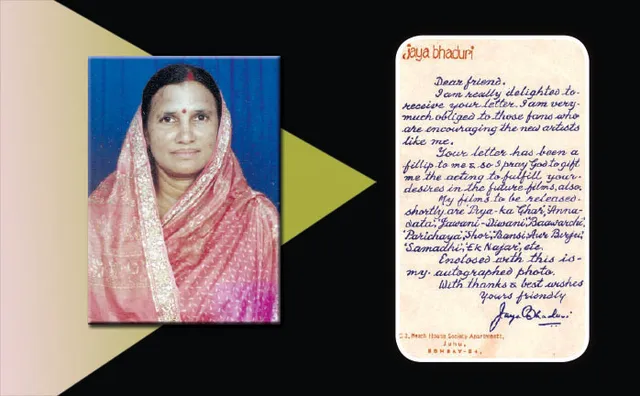 jaya bhaduri
Dear friend.
I am really delighted to-
receive your letter. I am very-
much obliged to those fans who
are encouraging the new artists
like me.
Your letter has been a
fillip to me & so I pray God to gift
me the acting to fulfill your-
desires in the future films, also.
My films to be released-
shortly are "Piya-ka Ghar", "Anna-
data", "Jawani-Diwani", "Baawarchi",
"Parichaya", "Shor", "Bansi Aur Birju",
"Samadhi", "Ek Najar", etc.
Enclosed with this is-
my autographed photo.
With thanks & best wishes
Yours friendly
Jaya Bhaduri
Beach House Society Apartments,
Juhu,
BOMBAY-54.